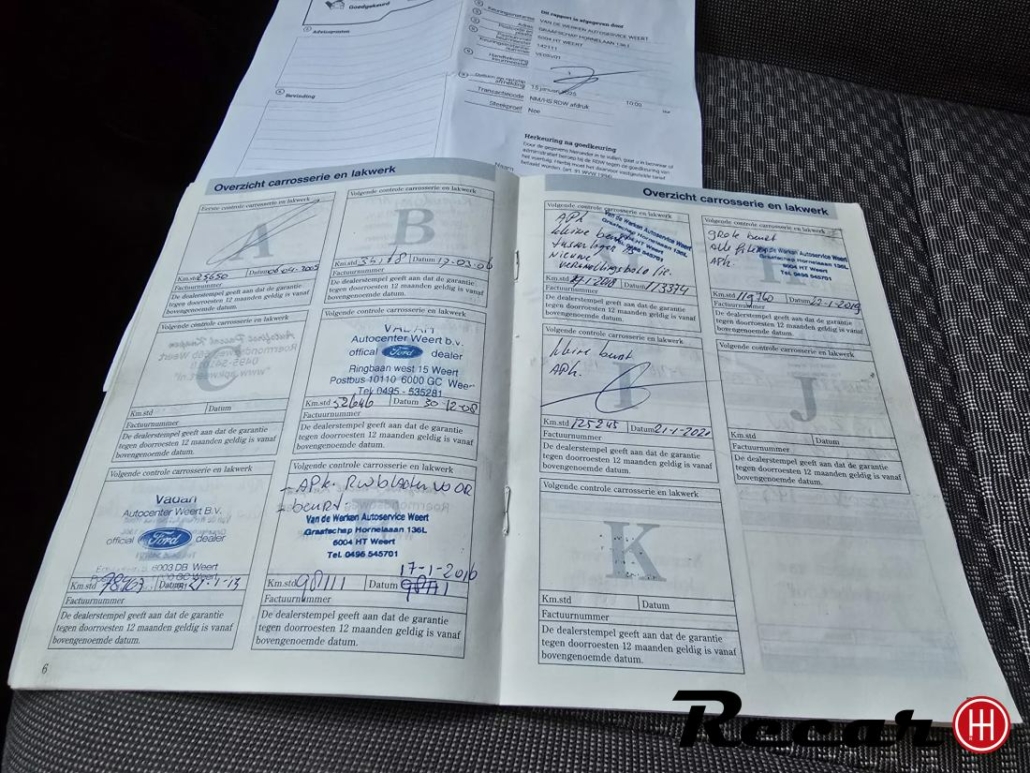 Goedgekeurd
Adviespunten
Bevinding
Dit rapport is afgegeven door
VAN DE WERKEN AUTOSERVICE WEERT
GRAAFSCHAP HORNELAAN 136L
6004 HT WEERT
Transactiecode NM/HS RDW afdruk
10:05
Steekproef Nee
Herkeuring na goedkeuring
Overzicht carrosserie en lakwerk
Eerste controle carrosserie en lakwerk
A
Km.std 23650 Datum
Factuurnummer
De dealerstempel geeft aan dat de garantie
tegen doorroesten 12 maanden geldig is vanaf
bovengenoemde datum.
Volgende controle carrosserie en lakwerk
B
Km.std Datum 17-03-06
Factuurnummer
De dealerstempel geeft aan dat de garantie
tegen doorroesten 12 maanden geldig is vanaf
bovengenoemde datum.
Volgende controle carrosserie en lakwerk
C
Km.std Datum
Factuurnummer
De dealerstempel geeft aan dat de garantie
tegen doorroesten 12 maanden geldig is vanaf
bovengenoemde datum.
VADAN
Autocenter Weert b.v.
offical Ford dealer
Ringbaan west 15 Weert
Postbus 10110 6000 GC Weert
Tel. 0495 - 535281
Km.std 52646 Datum 30-12-08
Factuurnummer
De dealerstempel geeft aan dat de garantie
tegen doorroesten 12 maanden geldig is vanaf
bovengenoemde datum.
Volgende controle carrosserie en lakwerk
Vadan
Autocenter Weert B.V.
official Ford dealer
6003 DB Weert
Km.std Datum
Factuurnummer
De dealerstempel geeft aan dat de garantie
tegen doorroesten 12 maanden geldig is vanaf
bovengenoemde datum.
Volgende controle carrosserie en lakwerk
- APK. Rwblader VOOR
- beurt
Van de Werken Autoservice Weert
Graafschap Hornelaaan 136L
6004 HT Weert
Tel. 0495 545701
17-1-2016
Km.std 98111 Datum
Factuurnummer
De dealerstempel geeft aan dat de garantie
tegen doorroesten 12 maanden geldig is vanaf
bovengenoemde datum.
6
Overzicht carrosserie en lakwerk
Volgende controle carrosserie en lakwerk
APK
kleine beurt
Nieuwe
Van De Werken Autoservice Weert
Graafschap Hornelaan 136L
Km.std Datum 113374
Factuurnummer
De dealerstempel geeft aan dat de garantie
tegen doorroesten 12 maanden geldig is vanaf
bovengenoemde datum.
Volgende controle carrosserie en lakwerk
grote beurt
APK.
Km.std 119260 Datum 22-1-2019
Factuurnummer
De dealerstempel geeft aan dat de garantie
tegen doorroesten 12 maanden geldig is vanaf
bovengenoemde datum.
Volgende controle carrosserie en lakwerk
kleine beurt
APK.
I
Km.std 125245 Datum 21-1-2020
Factuurnummer
De dealerstempel geeft aan dat de garantie
tegen doorroesten 12 maanden geldig is vanaf
bovengenoemde datum.
Volgende controle carrosserie en lakwerk
J
Km.std Datum
Factuurnummer
De dealerstempel geeft aan dat de garantie
tegen doorroesten 12 maanden geldig is vanaf
bovengenoemde datum.
Volgende controle carrosserie en lakwerk
K
Km.std Datum
Factuurnummer
De dealerstempel geeft aan dat de garantie
tegen doorroesten 12 maanden geldig is vanaf
bovengenoemde datum.
Recar H